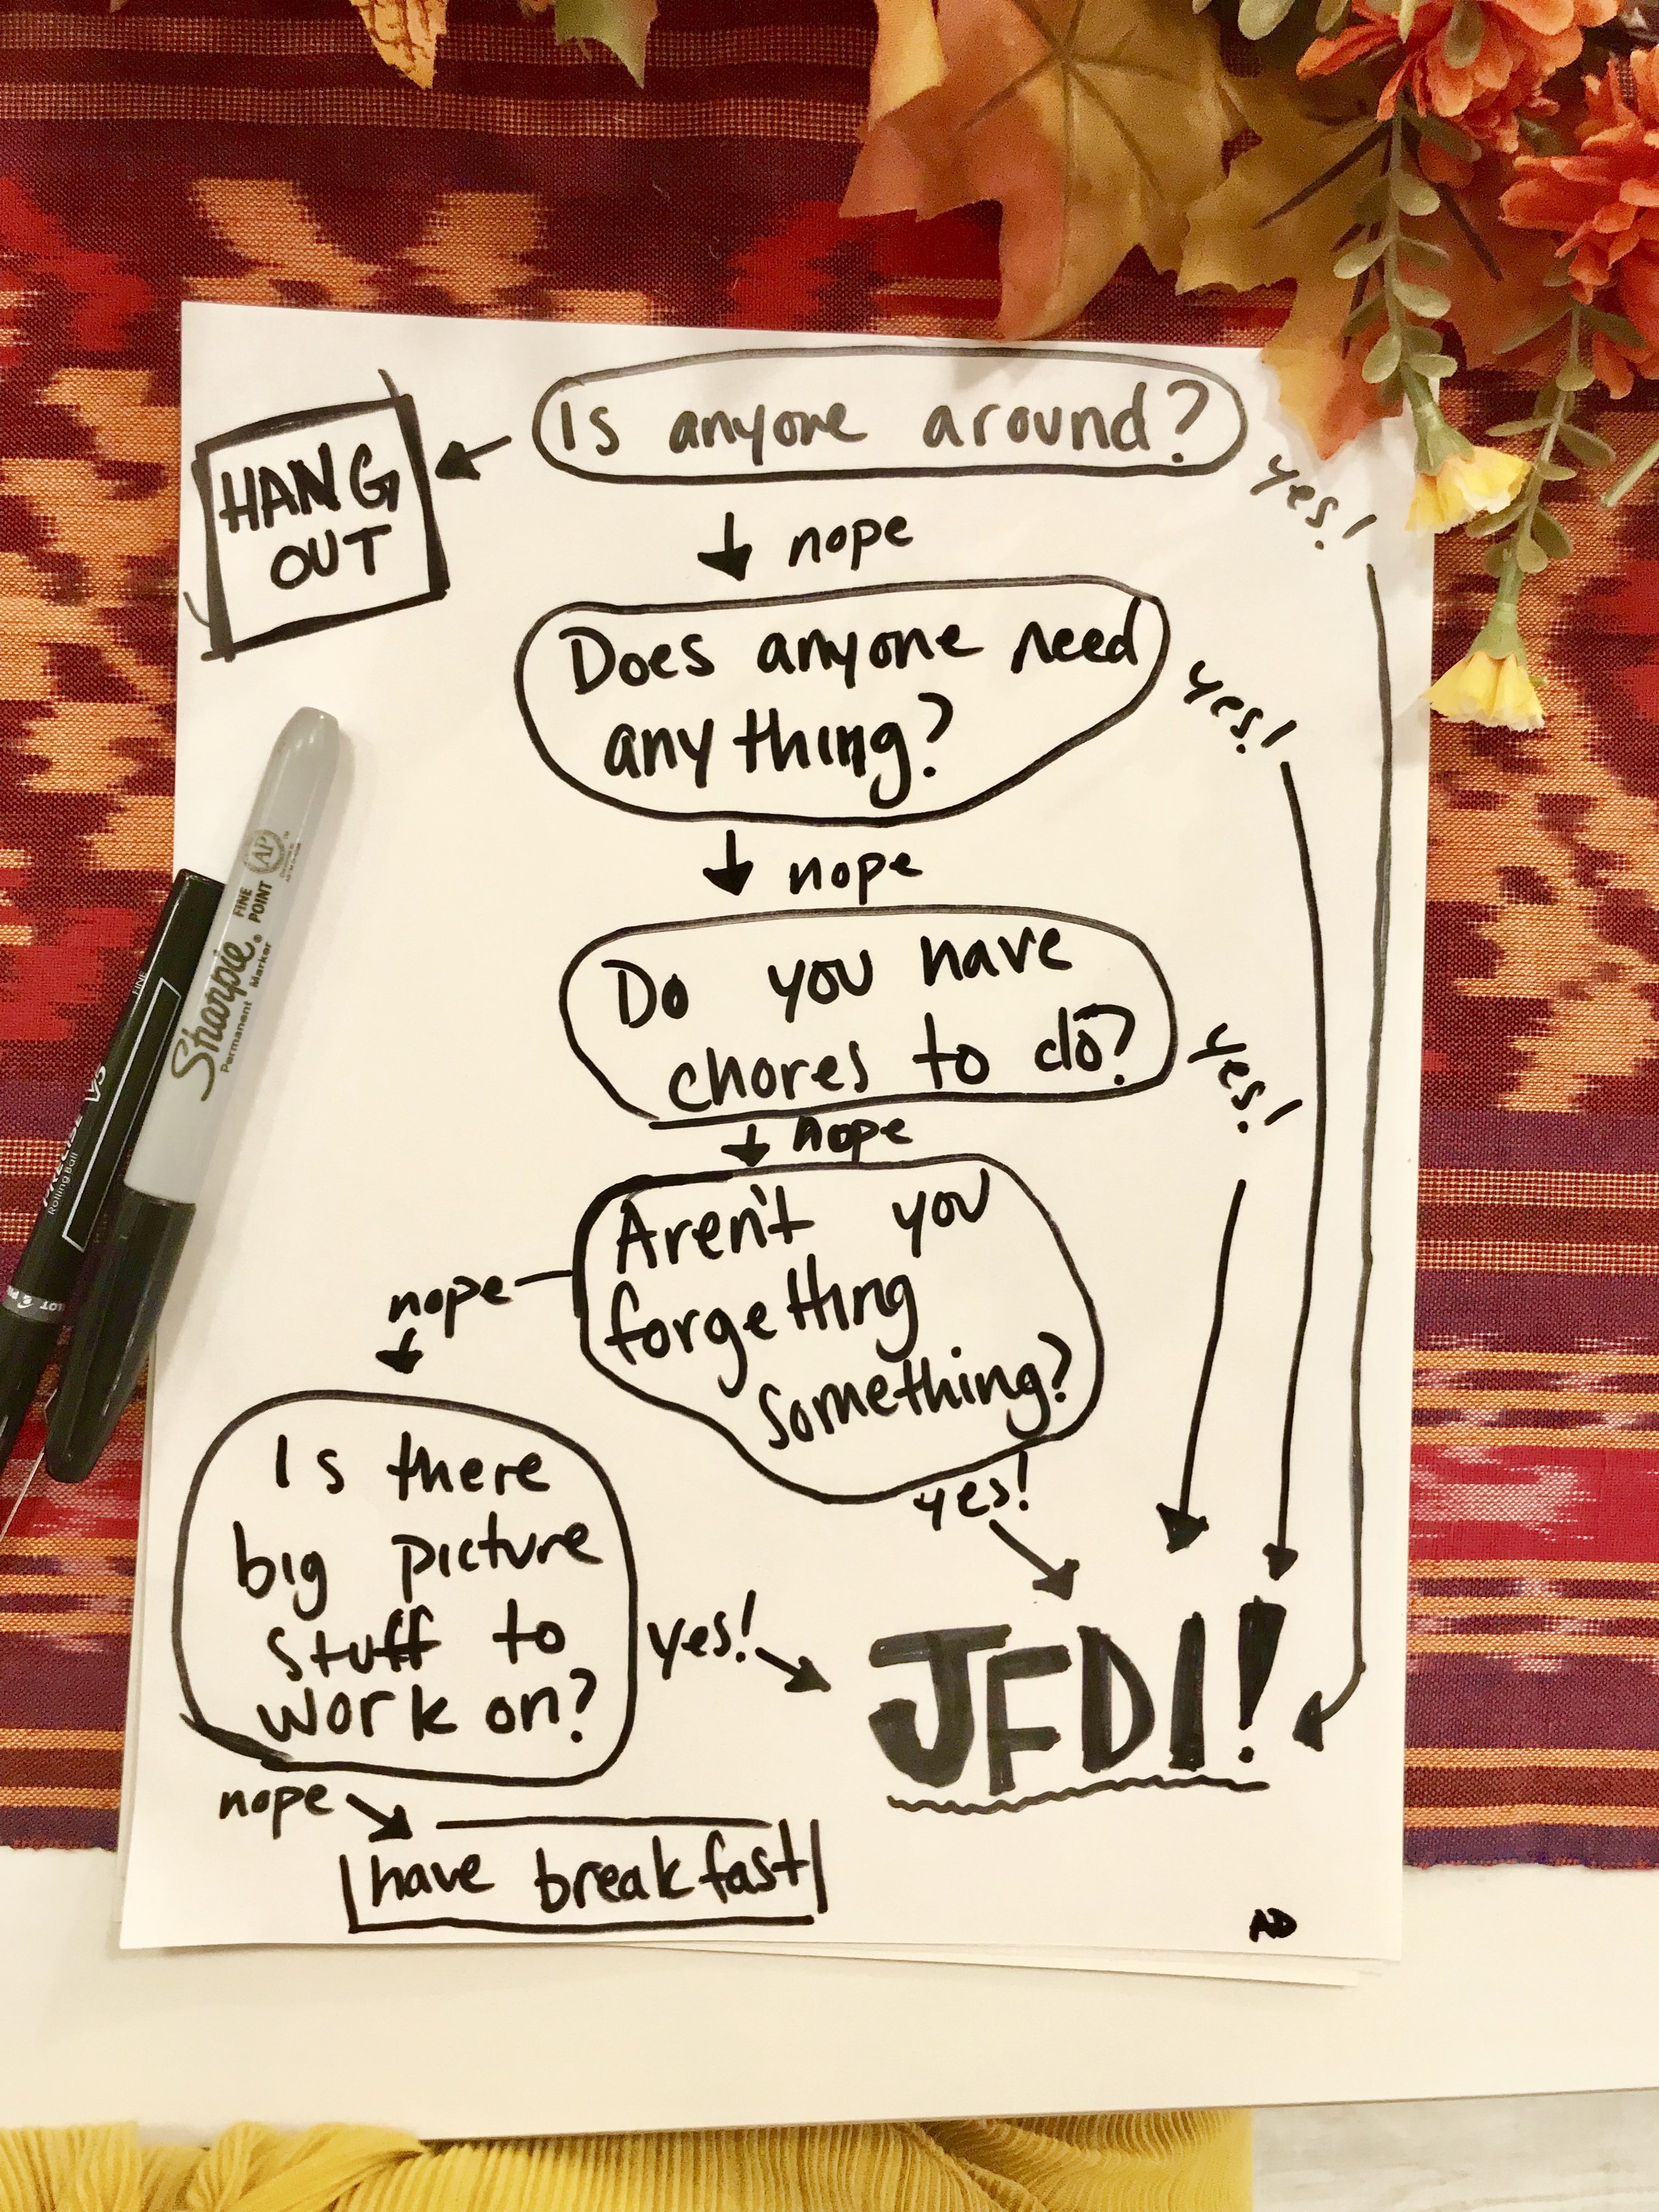 Is anyone around?
HANG
OUT
yes!
nope
Does anyone need
anything?
yes!
nope
Do you have
chores to do?
yes!
nope
Aren't you
forgetting
something?
nope
yes!
Is there
big picture
stuff to
work on?
yes!
JFDI!
nope
have breakfast
AD
Sharpie®
FINE
POINT
Permanent Marker
AP
FINE
V5
Rolling Ball